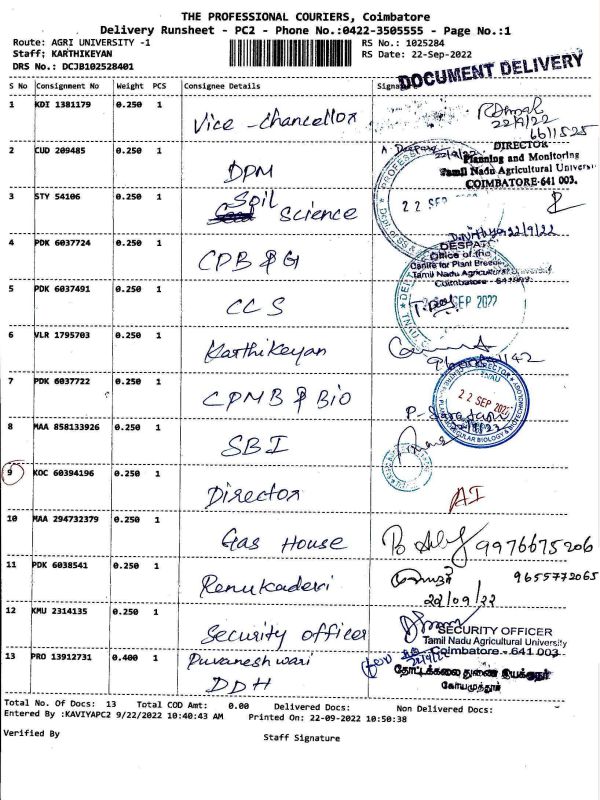 THE PROFESSIONAL COURIERS, Coimbatore
Delivery Runsheet - PC2 - Phone No.:0422-3505555 - Page No.:1
Route: AGRI UNIVERSITY -1 RS No.: 1025284
Staff: KARTHIKEYAN RS Date: 22-Sep-2022
DRS No.: DCJB102528401
DOCUMENT DELIVERY
S No Consignment No Weight PCS Consignee Details
1 KDI 1381179 0.250 1 Vice - Chancellor
22/9/22
6611525
2 CUD 209485 0.250 1 DPM
22/9/22
DIRECTOR
Planning and Monitoring
Tamil Nadu Agricultural
COIMBATORE-641 003.
3 STY 54106 0.250 1 Soil Science
22 SEP
22/9/22
4 PDK 6037724 0.250 1 CPB & G
Office of the
Centre for Plant
Tamil Nadu Agricultural University
Coimbatore - 641003
5 PDK 6037491 0.250 1 CCS
SEP 2022
6 VLR 1795703 0.250 1 Karthikeyan
7 PDK 6037722 0.250 1 CPMB & Bio
22 SEP 2022
8 MAA 858133926 0.250 1 SBI
9 KOC 60394196 0.250 1 Director
AI
10 MAA 294732379 0.250 1 Gas House
9976675206
11 PDK 6038541 0.250 1 Renukadevi
9655772065
22/09/22
12 KMU 2314135 0.250 1 Security officer
SECURITY OFFICER
Tamil Nadu Agricultural University
Coimbatore - 641 003
13 PRO 13912731 0.400 1 Puvaneshwari
DDH
22/9/22
தோட்டக்கலை துணை இயக்குநர்
கோயமுத்தூர்
Total No. Of Docs: 13 Total COD Amt: 0.00 Delivered Docs: Non Delivered Docs:
Entered By :KAVIYAPC2 9/22/2022 10:40:43 AM Printed On: 22-09-2022 10:50:38
Verified By Staff Signature